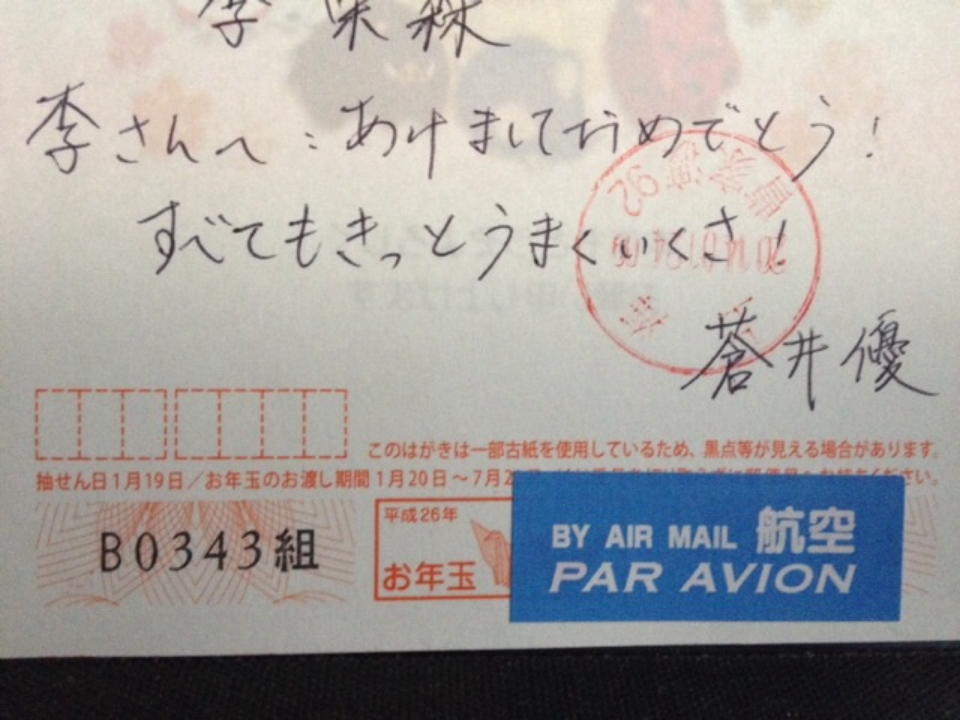 李果森
李さんへ:あけましておめでとう!
すべてもきっとうまくいくさ!
蒼井優
このはがきは一部古紙を使用しているため、黒点等が見える場合があります。
抽せん日1月19日/お年玉のお渡し期間1月20日~7月2
B0343組
平成26年
お年玉
BY AIR MAIL 航空
PAR AVION